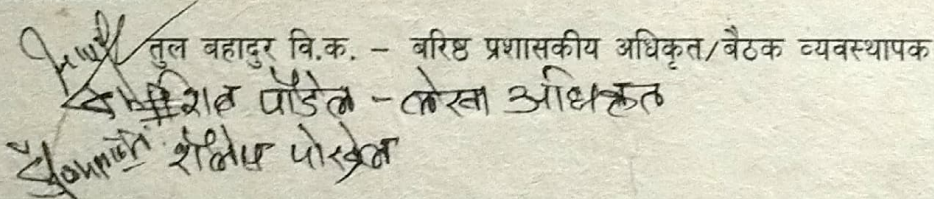 तुल बहादुर वि.क. - बरिष्ठ प्रशासकीय अधिकृत/बैठक व्यवस्थापक
पौडेल - लेखा अधिकृत
पोखरेल